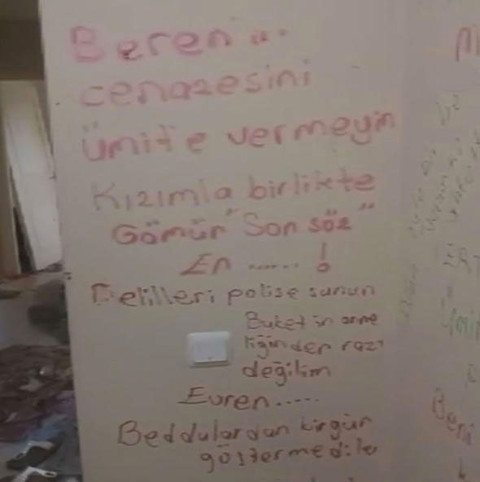 Beren'in
cenazesini
Ümit'e vermeyin
Kızımla birlikte
Gömün "Son söz"
En ..... !
Delilleri polise sunun
Buket'in anne
liğinden razı
değilim
Evren.....
Beddulardan birgün
göstermediler
Beni